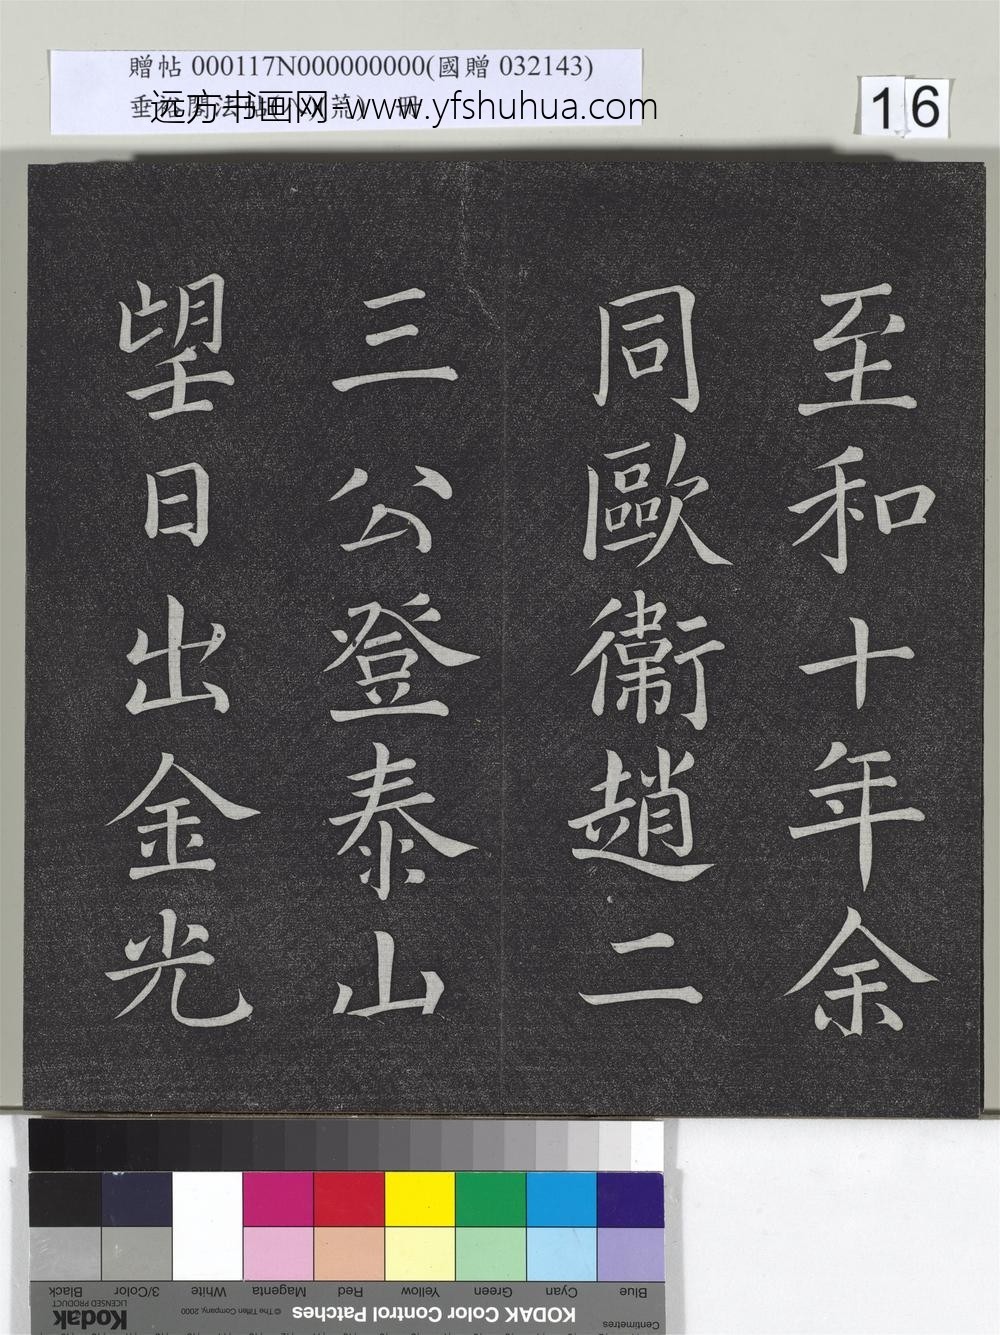 贈帖 000117N000000000(國贈 032143)
远方书画网-www.yfshuhua.com
冊
16
至和十年余
同歐衛趙二
三公登泰山
望日出金光
Blue Cyan Green Yellow Red Magenta White 3/Color Black
Centimetres
KODAK Color Control Patches
© The Tiffen Company, 2000
Kodak
LICENSED PRODUCT